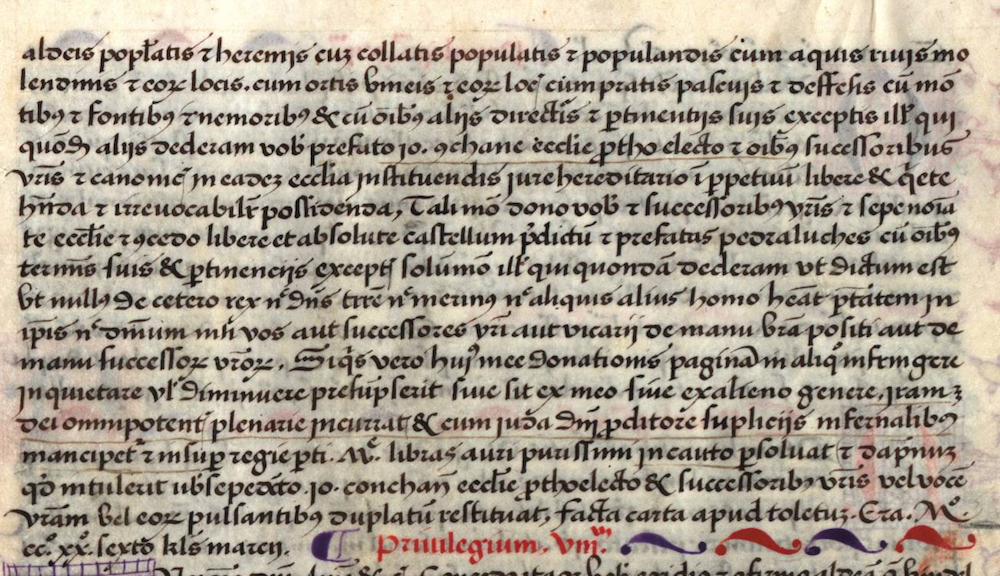 aldeis popl̃atis ⁊ heremis cuꝫ collatis populatis ⁊ populandis cum aquis riuis mo
lendinis ⁊ eoꝝ locis. cum ortis vineis ⁊ eoꝝ loc̃ cum pratis pascuis ⁊ deffesis cũ mõ
tibꝰ ⁊ fontibꝰ ⁊ nemoribꝰ & cũ oĩbꝰ alijs directis ⁊ ꝑtinentijs suis exceptis ill̃ qui
quõdã alijs dederam vob̃ prefato io. ꝯchane eccl̃ie ꝓtho electo ⁊ oĩbꝰ sucessoribus
vr̃is ⁊ canonic̃ in eadeꝫ eccl̃ia instituendis iure hereditario ĩ ꝑpetuũ libere & q̃ete
hñda ⁊ irreuocabilr̃ possidenda, Tali mõ dono vob̃ ⁊ successoribꝰ vr̃is ⁊ sepe noĩa
te eccl̃ie ⁊ ꝯcedo libere et absolute castellum p̃dictũ ⁊ prefatas pedraluches cũ oĩbꝰ
termĩs suis & ꝑtinencijs except̃ solũmõ ill̃ qui quondã dederam vt dictum est
vt nullꝰ de cetero rex nᶜ dñs terr̃e nᶜ merinꝰ nᶜ aliquis alius homo heat p̃tatem in
ip̃is nᶜ dm̃ium nisi vos aut successores vr̃i aut vicarij de manu vr̃a positi aut de
manu successoꝝ vr̃oꝝ. Siq̃s vero huiꝰ mee donationis paginã in aliqͦ infringere
inquietare vl̃ diminuere presũpserit siue sit ex meo siue ex alieno genere, iramꝫ
dei omnipotent̃ plenarie incurrat & cum iuda dñi ꝓditore suplicijs infernalibꝰ
mancipet᷑ ⁊ insuꝑ regie ꝑti. Mͤ. libras auri purissimi in cauto ꝑsoluat ⁊ dapnuꝫ
qd̃ intulerit vb̃ sepedc̃to. io. conchañ eccl̃ie ꝓthoelecto & successoribꝰ vr̃is vel vocẽ
vr̃am vel eoꝝ pulsantibꝰ duplatũ restituat, facta carta apud toletuꝫ. Era. Mͣ.
ccͣ. xxͣ. sexto kl̃s marcij. ¶ Priuilegium. viijᵐ.